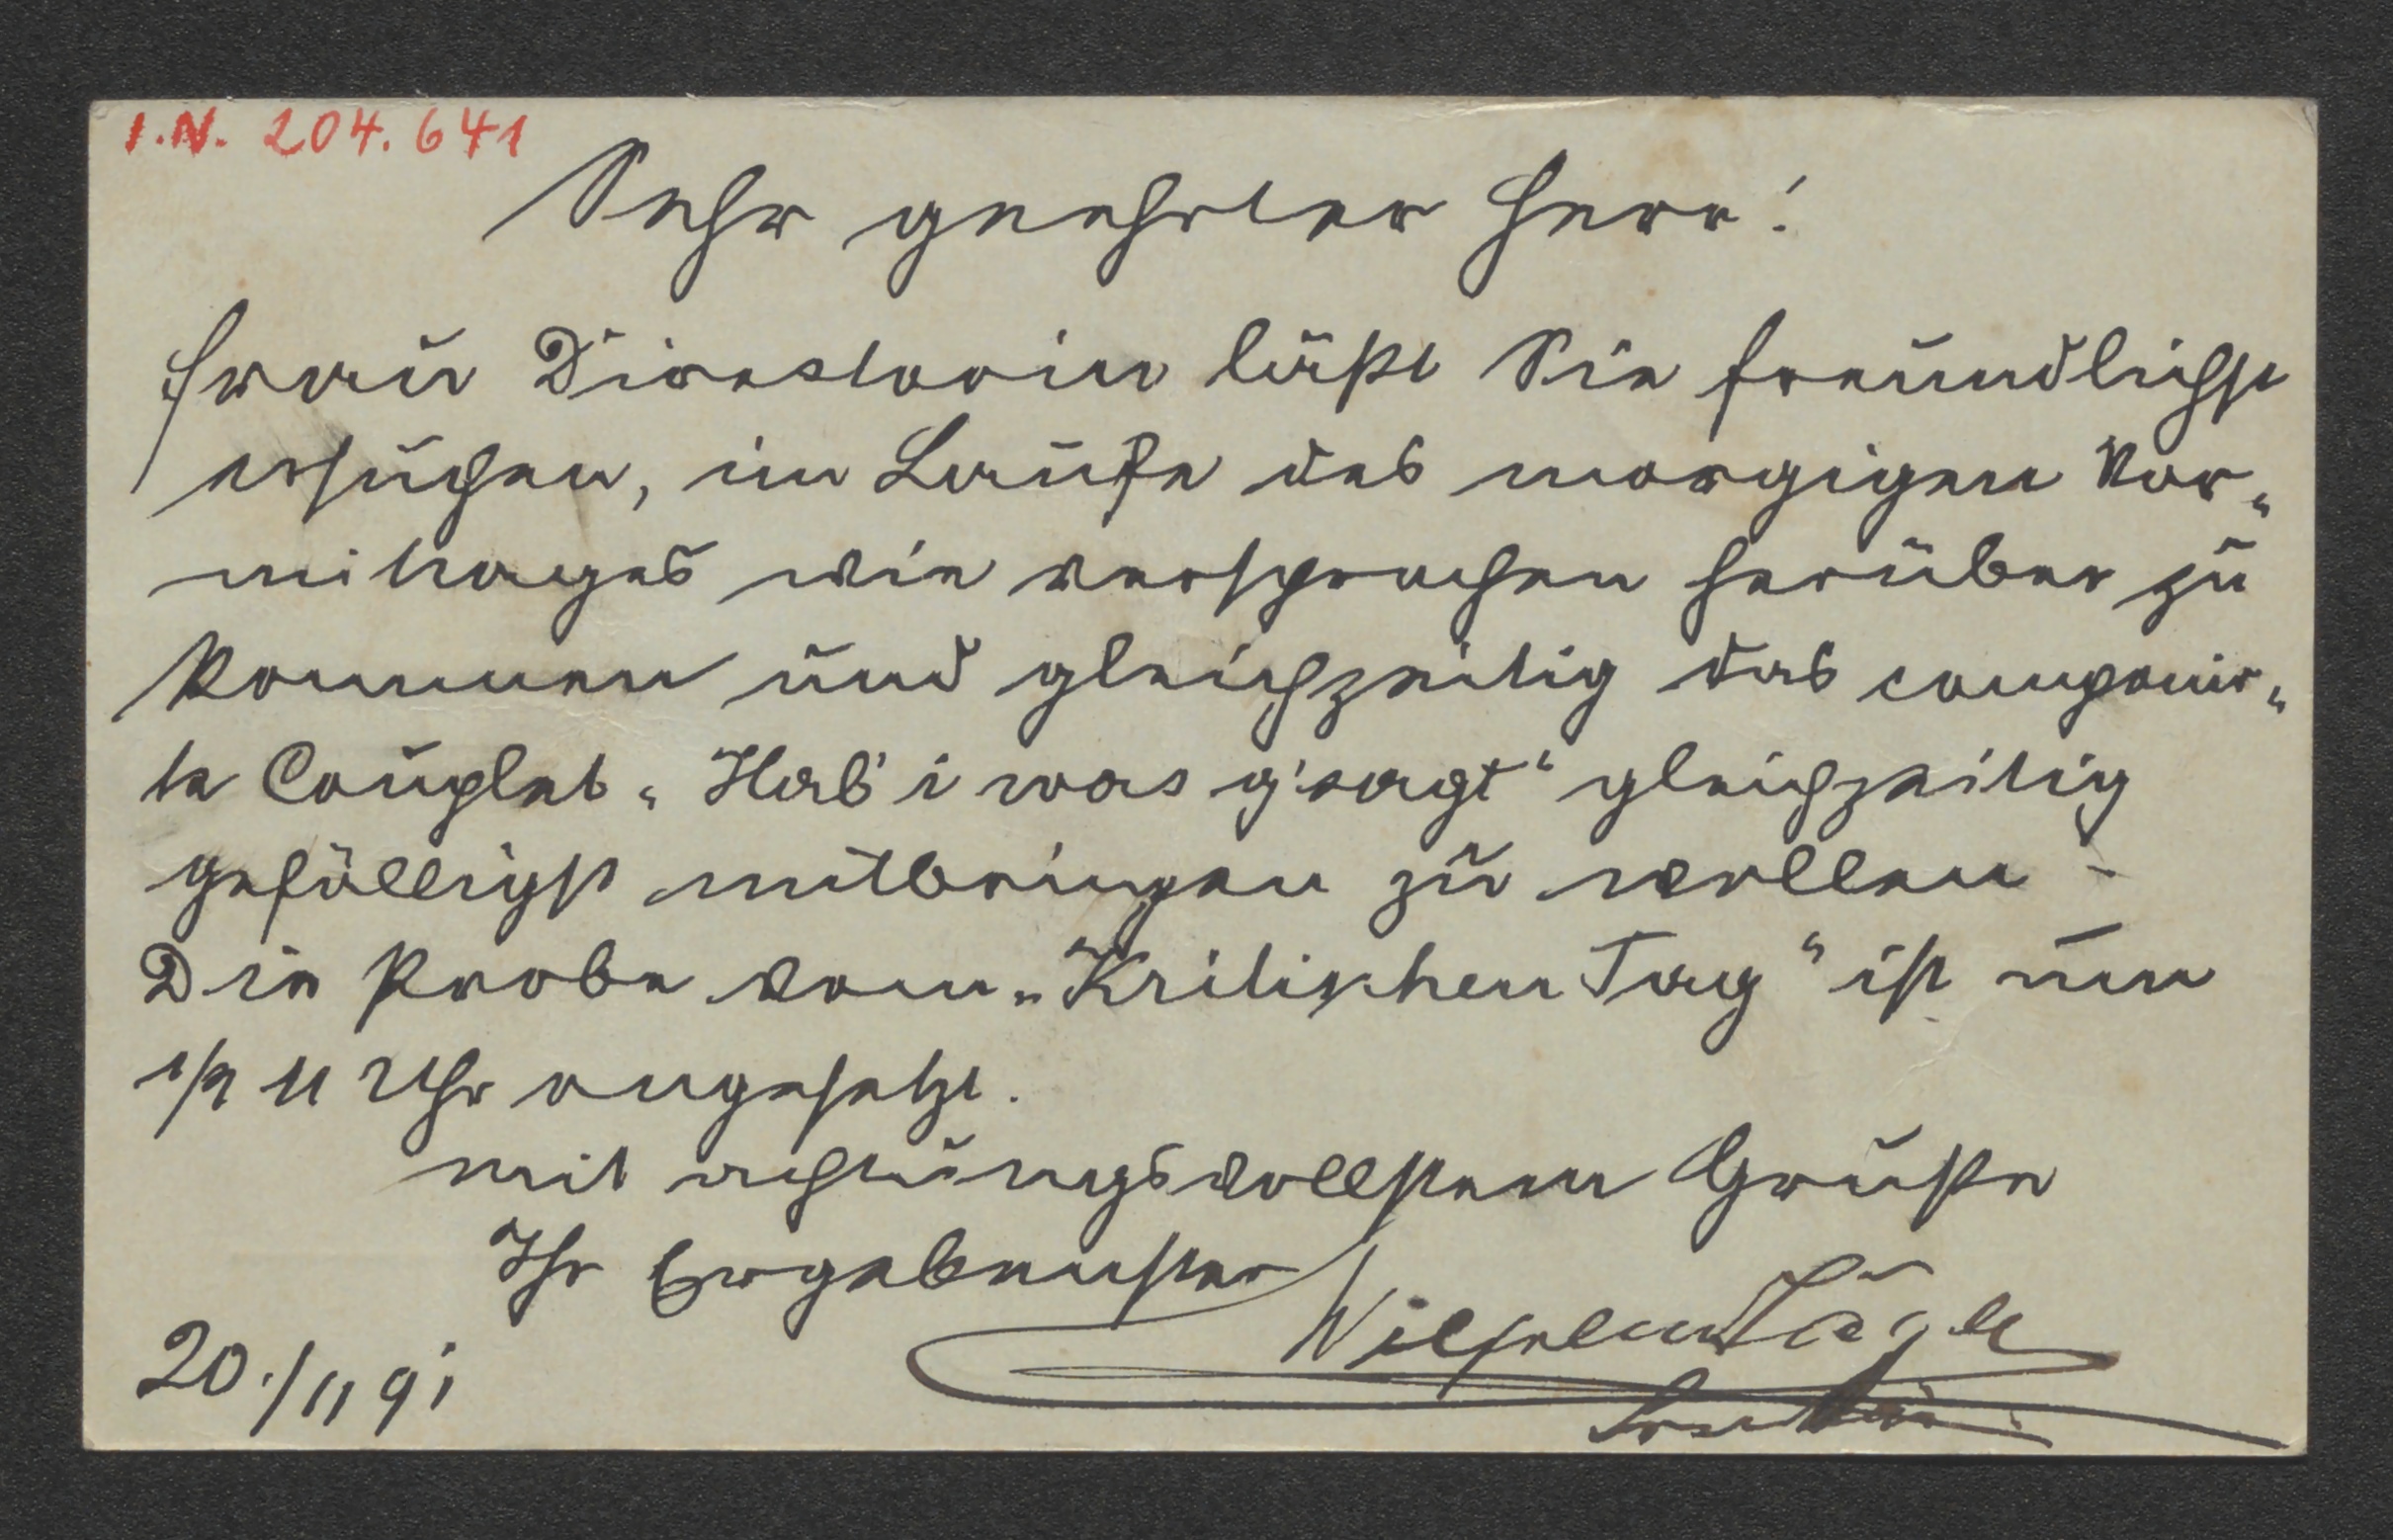 I.N. 204.641
Sehr geehrter Herr!
Frau Directorin läßt Sie freundlichst
ersuchen, im Laufe des morgigen Vor„
mittages wie versprochen herüber zu
kommen und gleichzeitig das componir„
te Couplet „Hab' i was g'sagt“ gleichzeitig
gefälligst mitbringen zu wollen –
Die Probe vom „Kritischen Tag“ ist um
1/2 11 Uhr angesetzt.
mit achtungsvollstem Gruße
Ihr Ergebenster
Wilhelm Jäger
20./11 91